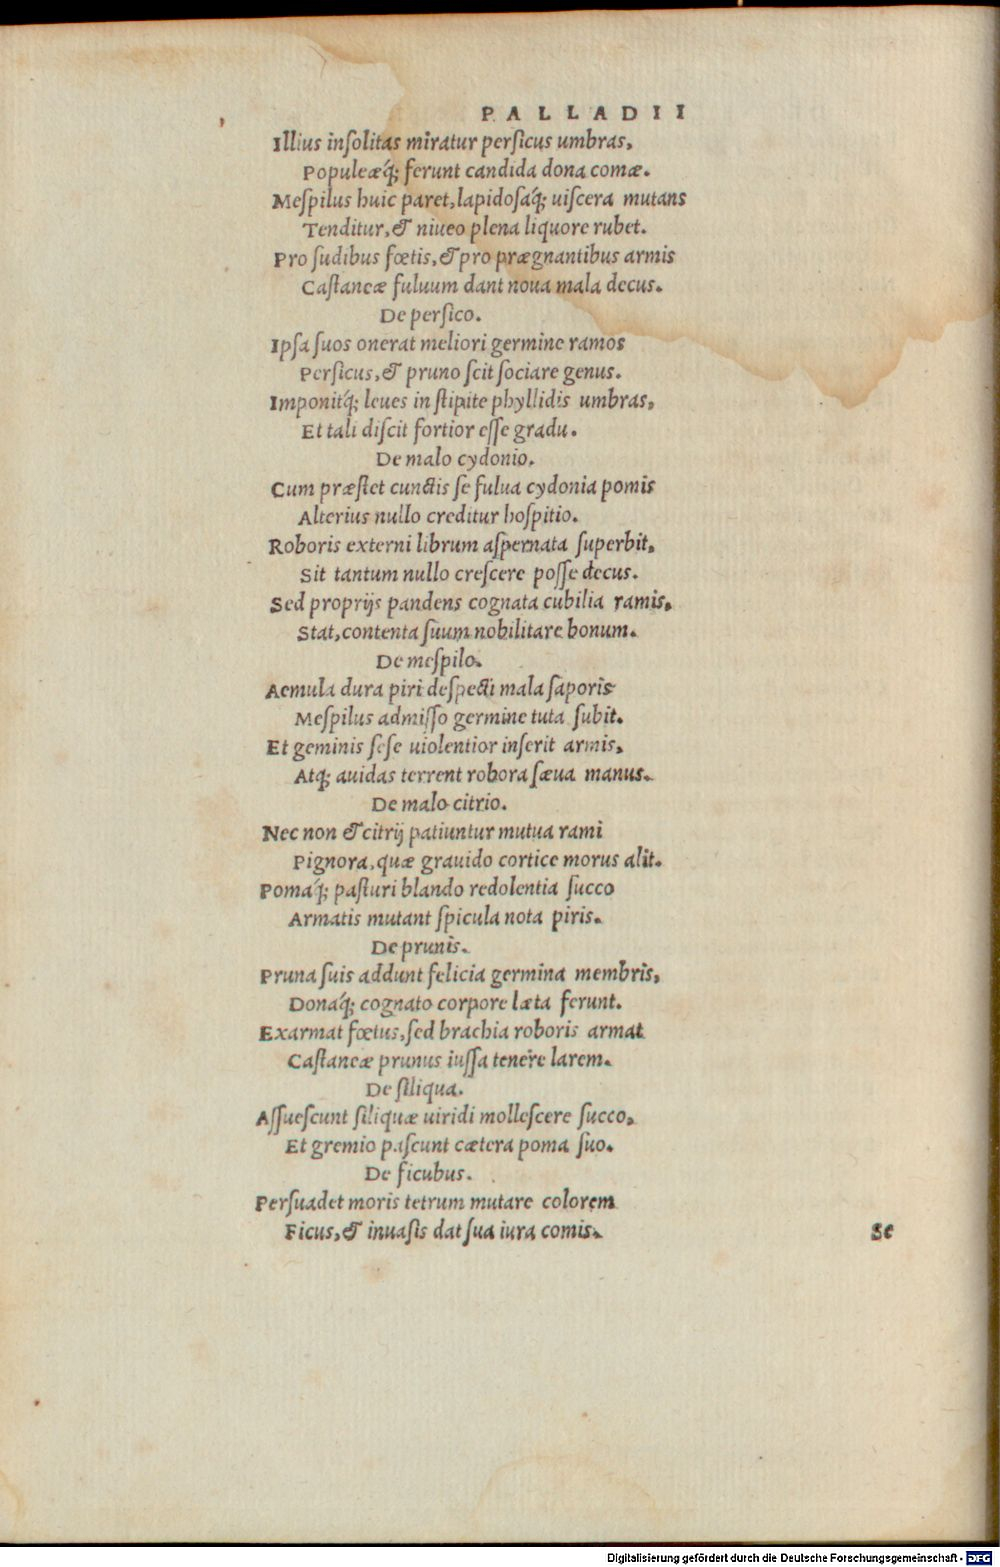 PALLADII
Illius inſolitas miratur perſicus umbras,
Populeæq́; ferunt candida dona comæ.
Meſpilus huic paret, lapidoſaq́; uiſcera mutans
Tenditur, & niueo plena liquore rubet.
Pro ſudibus fœtis, & pro prægnantibus armis
Caſtaneæ fuluum dant noua mala decus.
De perſico.
Ipſa ſuos onerat meliori germine ramos
Perſicus, & pruno ſcit ſociare genus.
Imponitq́; leues in ſtipite phyllidis umbras,
Et tali diſcit fortior eſſe gradu.
De malo cydonio.
Cum præſtet cunctis ſe fulua cydonia pomis
Alterius nullo creditur hoſpitio.
Roboris externi librum aſpernata ſuperbit,
Sit tantum nullo creſcere poſſe decus.
Sed proprijs pandens cognata cubilia ramis,
Stat, contenta ſuum nobilitare bonum.
De meſpilo.
Aemula dura piri deſpecti mala ſaporis
Meſpilus admiſſo germine tuta ſubit.
Et geminis ſeſe uiolentior inſerit armis,
Atq; auidas terrent robora ſæua manus.
De malo citrio.
Nec non & citrij patiuntur mutua rami
Pignora, quæ grauido cortice morus alit.
Pomaq́; paſturi blando redolentia ſucco
Armatis mutant ſpicula nota piris.
De prunis.
Pruna ſuis addunt felicia germina membris,
Donaq́; cognato corpore læta ferunt.
Exarmat fœtus, ſed brachia roboris armat
Caſtaneæ prunus iuſſa tenere larem.
De ſiliqua.
Aſſueſcunt ſiliquæ uiridi molleſcere ſucco,
Et gremio paſcunt cætera poma ſuo.
De ficubus.
Perſuadet moris tetrum mutare colorem
Ficus, & inuaſis dat ſua iura comis.
Se
Digitalisierung gefördert durch die Deutsche Forschungsgemeinschaft - DFG